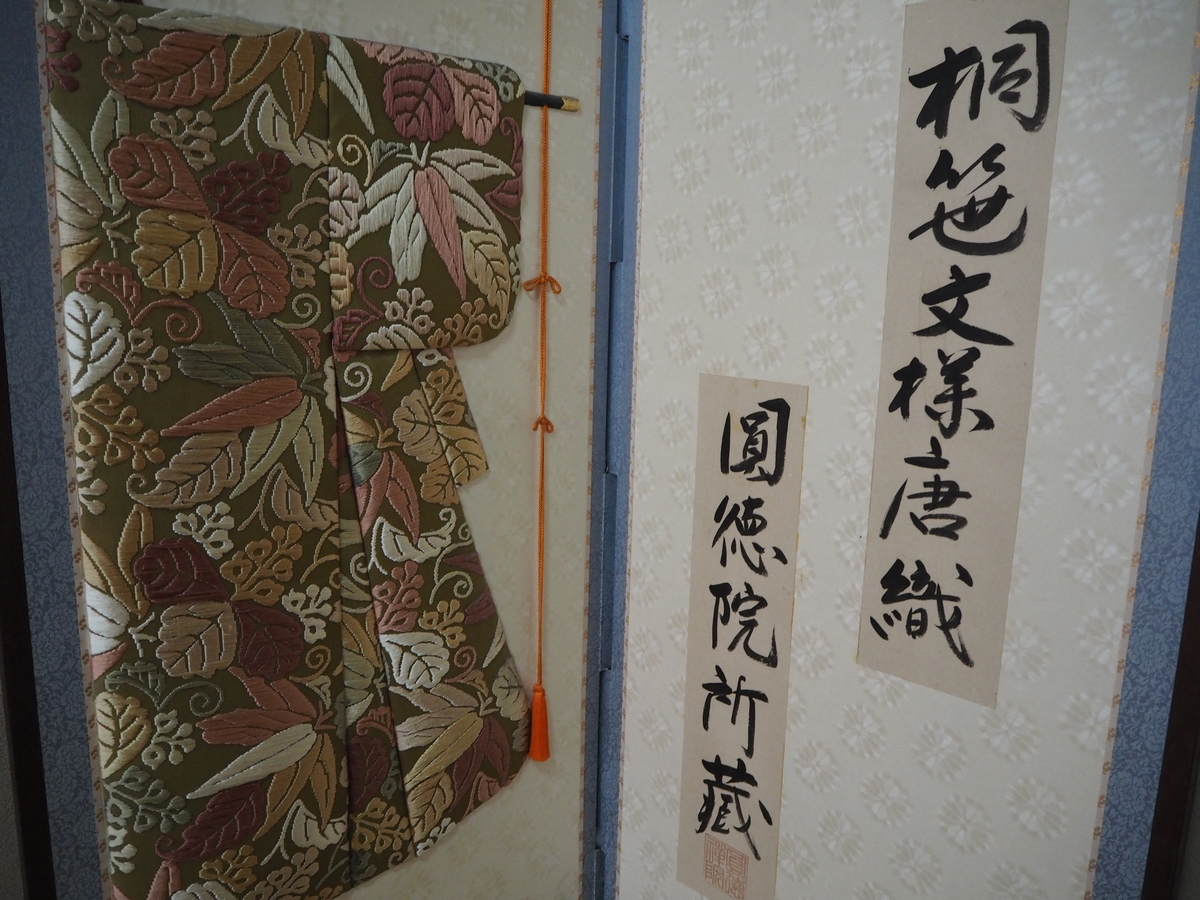 桐笹文様唐織
圓徳院所藏